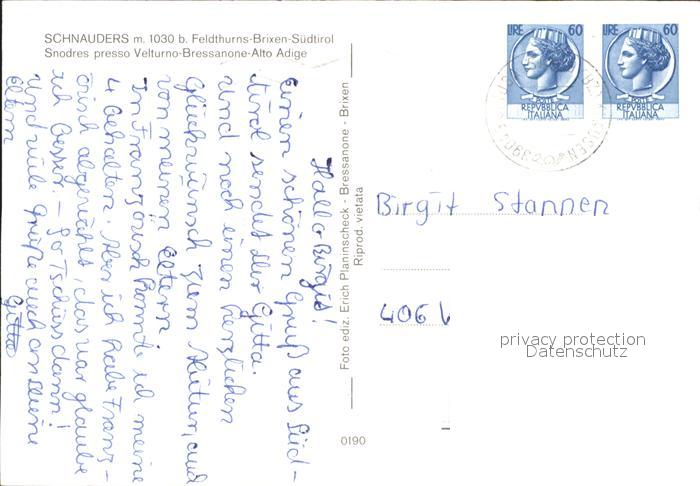 SCHNAUDERS m. 1030 b. Feldthurns-Brixen-Südtirol
Snodres presso Velturno-Bressanone-Alto Adige
Hallo Birgit!
Einen schönen Gruß aus Süd-
tirol sendet dir Gitta.
Und noch einen herzlichen
Glückwunsch zum Abitur, auch
von meinen Eltern
In Französisch konnte ich meine
4 behalten. Aber ich habe Franz-
ösich abgewählt, das war glaube
ich besser. - So Tschüss dann!
Und viele Grüße auch an Deine
Eltern
Gitta
Foto ediz. Erich Planinscheck - Bressanone - Brixen
Riprod. vietata
0190
LIRE 60
POSTE
REPVBBLICA
ITALIANA
LIRE 60
POSTE
REPVBBLICA
ITALIANA
Birgit Stannen
406
privacy protection
Datenschutz